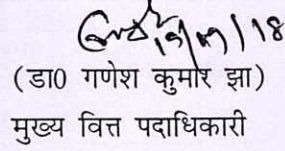 19/09/18
(डा0 गणेश कुमार झा)
मुख्य वित्त पदाधिकारी